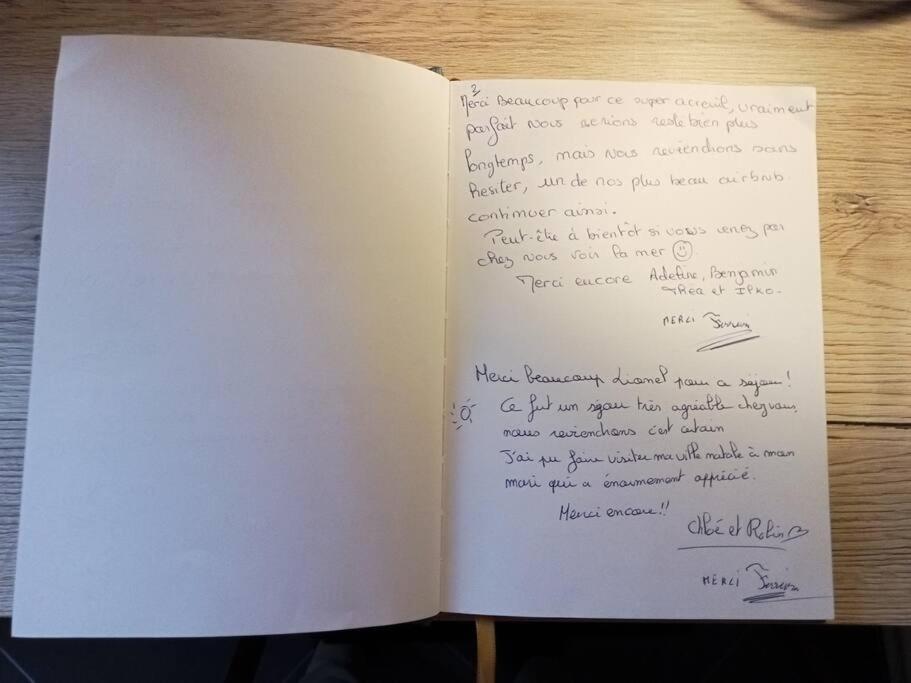 2
Merci Beaucoup pour ce super acceuil, vraiment
parfait nous serions resté bien plus
longtemps, mais nous reviendrons sans
hesiter, un de nos plus beau airbnb.
continuer ainsi.
Peut-être à bientôt si vous venez par
chez nous voir la mer ☺
Merci encore Adeline, Benjamin
Thea et
MERCI
Merci beaucoup Lionel pour ce séjour !
Ce fut un séjour très agréable chez vous,
nous reviendrons c'est certain
J'ai pu faire visiter ma ville natale à mon
mari qui a énormement apprécié.
Merci encore !!
Chloé et Robin
MERCI